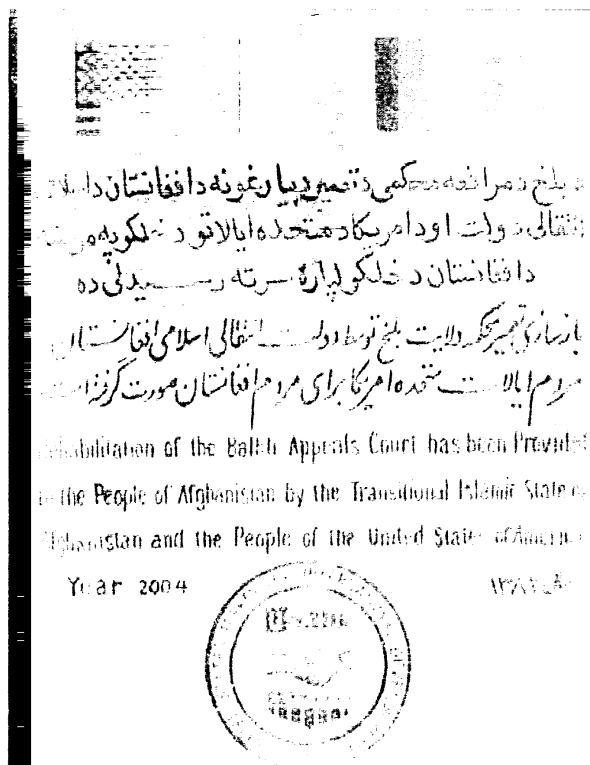 د بلخ د مرافعه محکمی د تعمیر بیا رغونه د افغانستان د اسلا
انتقالی دولت او د امریکا د متحده ایالاتو د خلکو په مرسته
د افغانستان د خلکو لپاره سرته رسیدلی ده
بازسازی تعمیر محکمه ولایت بلخ توسط دولت انتقالی اسلامی افغانستان
مردم ایالات متحده امریکا برای مردم افغانستان صورت گرفته است
Rehabilitation of the Balkh Appeals Court has been Provided
to the People of Afghanistan by the Transitional Islamic State of
Afghanistan and the People of the United States of America
Year 2004